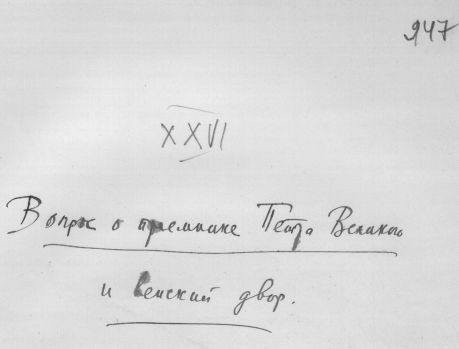 947
XXVI
Вопрос о преемнике Петра Великого
и венский двор.